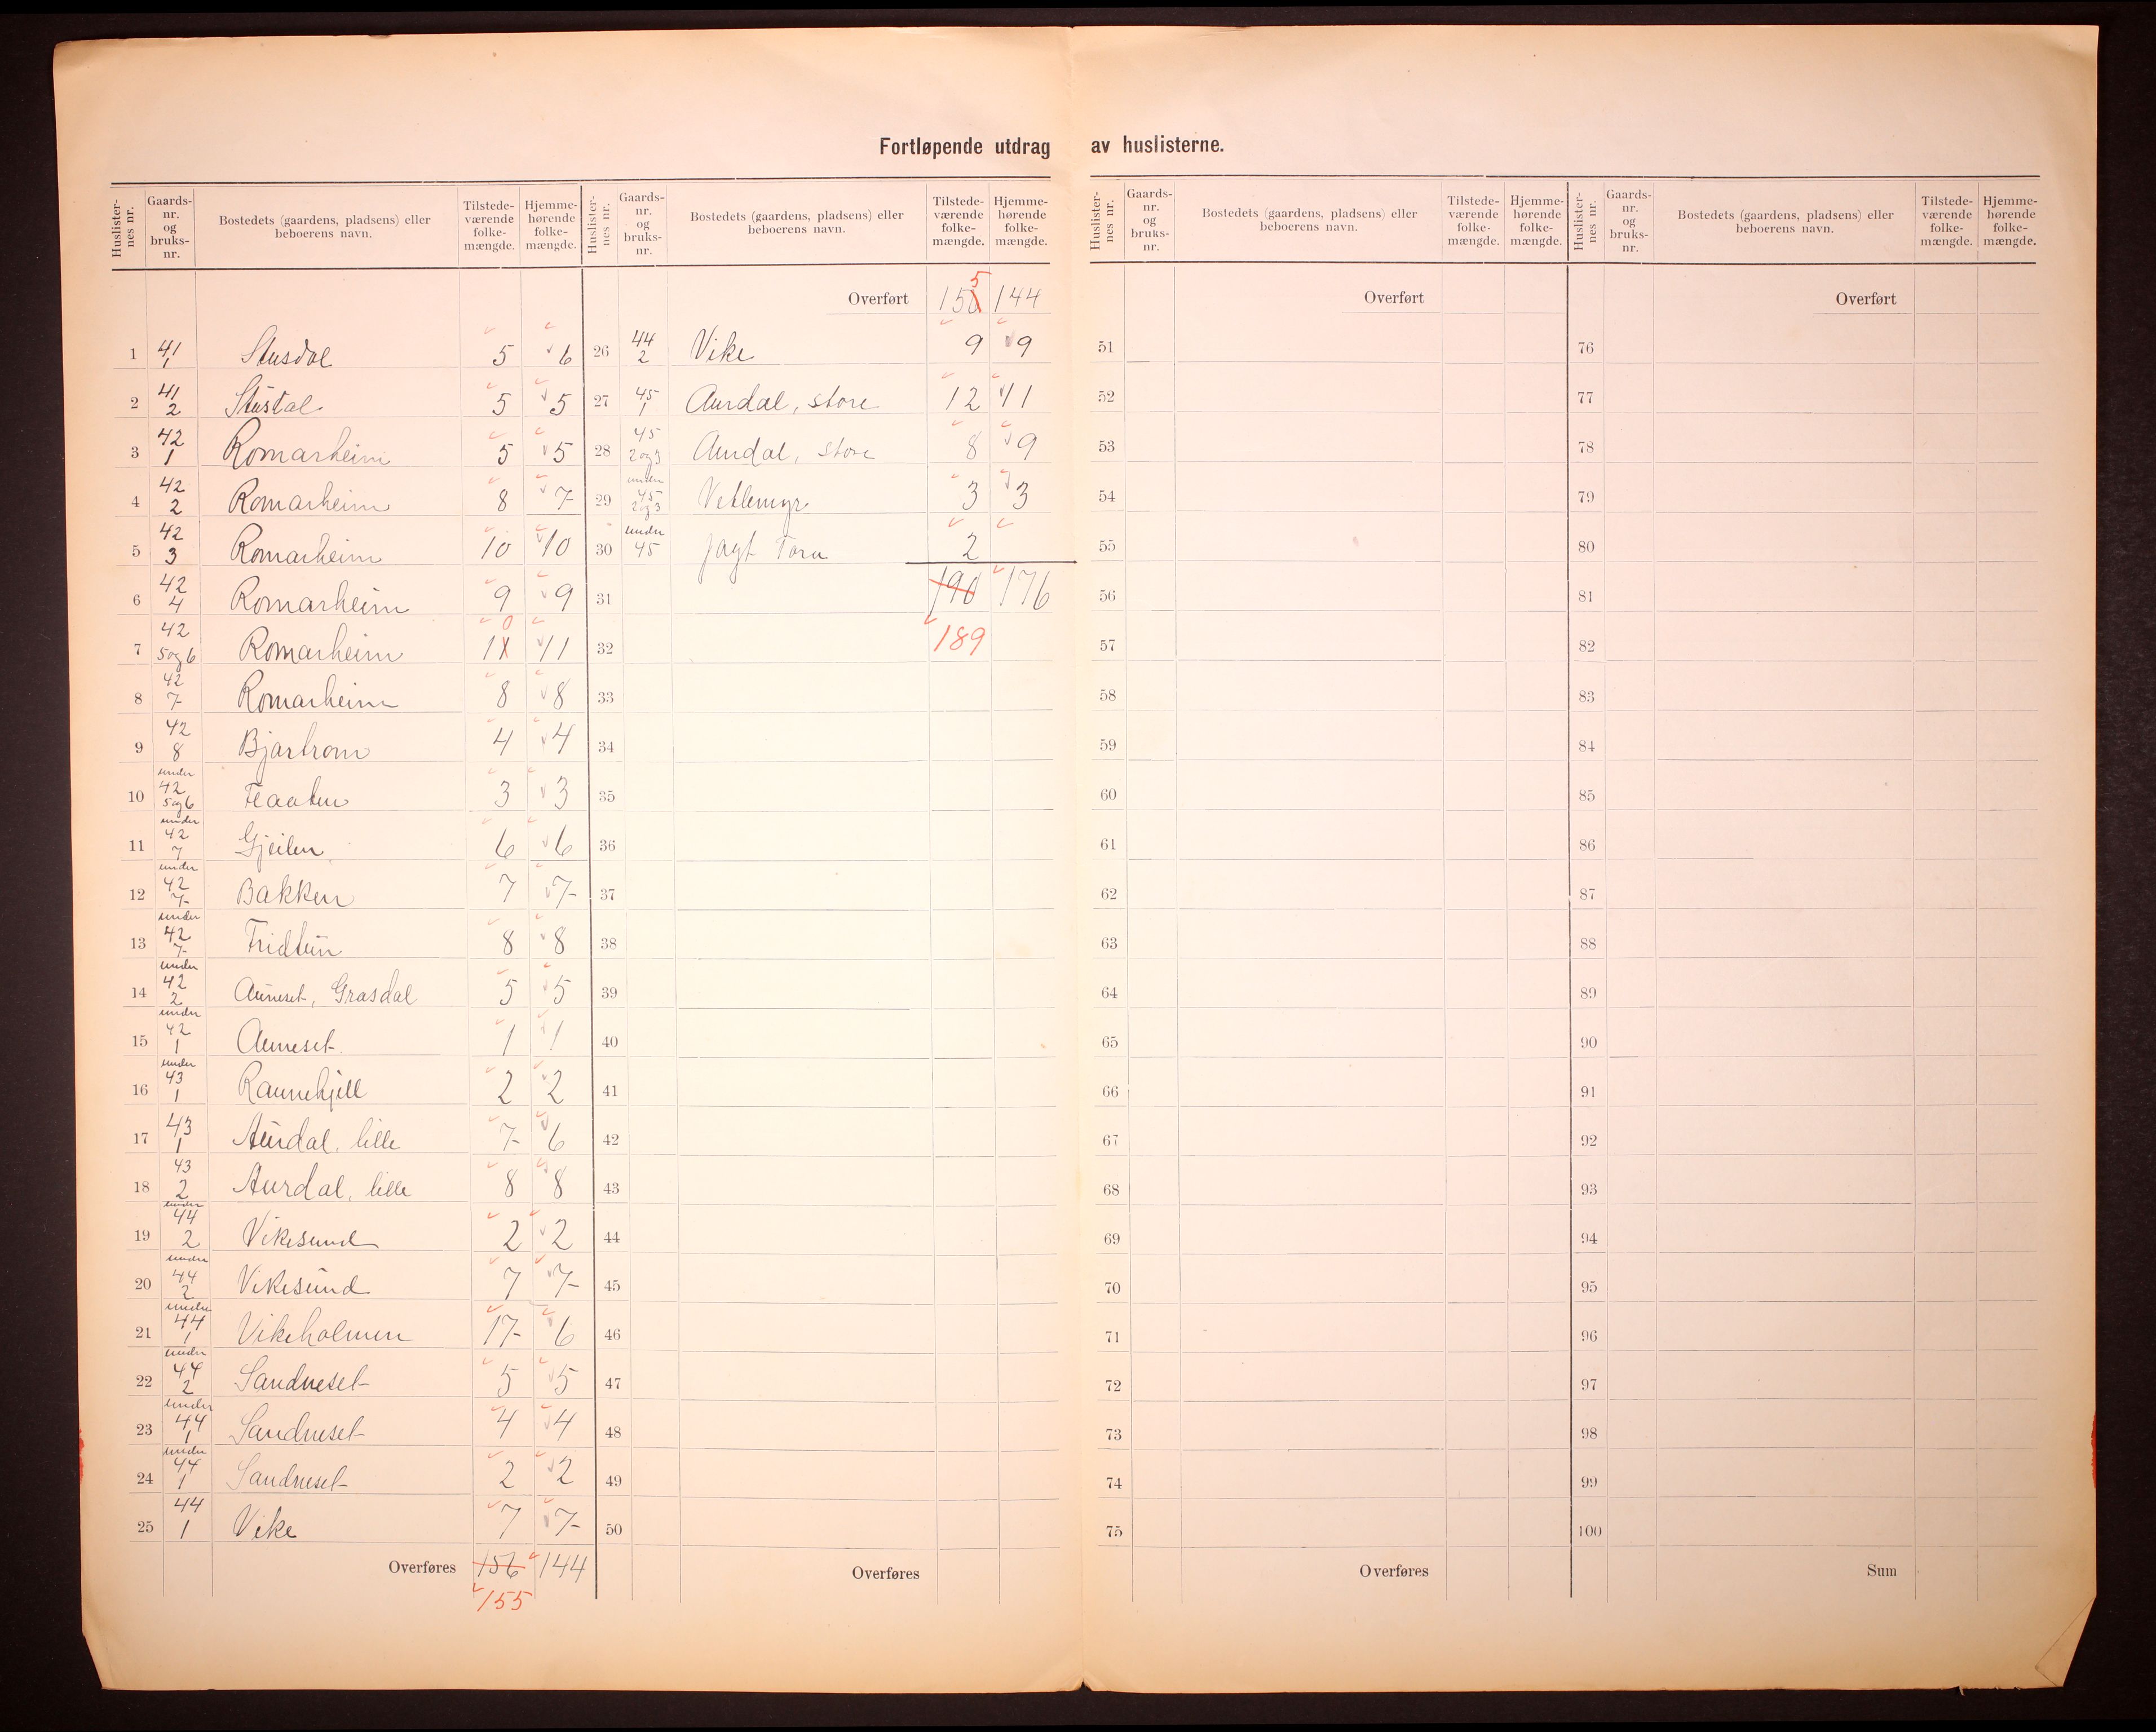 Fortløpende utdrag av huslisterne.
Huslisternes nr. Gaards-nr. og bruks-nr. Bostedets (gaardens, pladsens) eller beboerens navn. Tilstedeværende folkemængde. Hjemmehørende folkemængde. Huslisternes nr. Gaards-nr. og bruks-nr. Bostedets (gaardens, pladsens) eller beboerens navn. Tilstedeværende folkemængde. Hjemmehørende folkemængde.
1 41 1 Stusdal 5 6
2 41 2 Stustal 5 5
3 42 1 Romarheim 5 5
4 42 2 Romarheim 8 7
5 42 3 Romarheim 10 10
6 42 4 Romarheim 9 9
7 42 5og6 Romarheim 10 11
8 42 7 Romarheim 8 8
9 42 8 Bjartrom 4 4
10 under 42 5og6 Flaaten 3 3
11 under 42 7 Gjeilen 6 6
12 under 42 7 Bakken 7 7
13 under 42 7 Fridtun 8 8
14 under 42 2 Auneset, Grasdal 5 5
15 under 42 1 Auneset 1 1
16 under 43 1 Raunehjell 2 2
17 43 1 Aurdal, lille 7 6
18 43 2 Aurdal, lille 8 8
19 under 44 2 Vikesund 2 2
20 under 44 2 Vikesund 7 7
21 under 44 1 Vikeholmen 17 6
22 under 44 2 Sandneset 5 5
23 under 44 1 Sandneset 4 4
24 under 44 1 Sandneset 2 2
25 44 1 Vike 7 7
Overføres 156 144
155
Overført 155 144
26 44 2 Vike 9 9
27 45 1 Aurdal, store 12 11
28 45 2og3 Aurdal, store 8 9
29 under 45 2og3 Vetlemyr 3 3
30 under 45 Jagt 2
31 190 176
32 189
33
34
35
36
37
38
39
40
41
42
43
44
45
46
47
48
49
50
Overføres
Huslisternes nr. Gaards-nr. og bruks-nr. Bostedets (gaardens, pladsens) eller beboerens navn. Tilstedeværende folkemængde. Hjemmehørende folkemængde. Huslisternes nr. Gaards-nr. og bruks-nr. Bostedets (gaardens, pladsens) eller beboerens navn. Tilstedeværende folkemængde. Hjemmehørende folkemængde.
Overført
51
52
53
54
55
56
57
58
59
60
61
62
63
64
65
66
67
68
69
70
71
72
73
74
75
Overføres
Overført
76
77
78
79
80
81
82
83
84
85
86
87
88
89
90
91
92
93
94
95
96
97
98
99
100
Sum